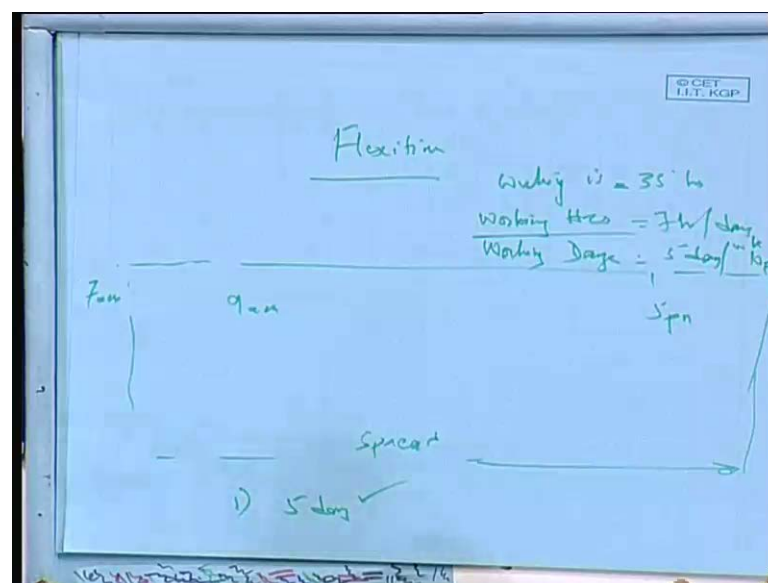 © CET
I.I.T. KGP
Flexitim
is = 35 hs
Working Hrs = 7h/day
Working Days = 5 day/
7am
9am
5pm
Spread
1) 5 day ✓